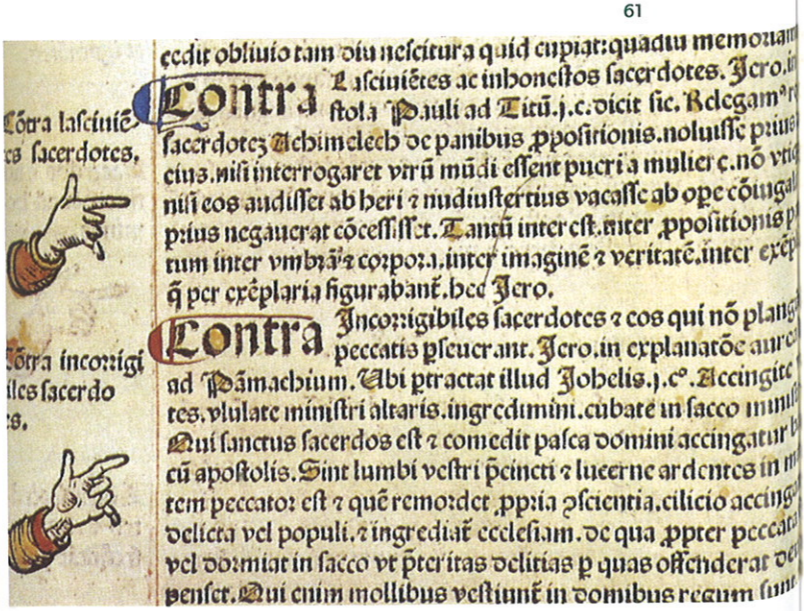 61
cedit obliuio tam diu nescitura quid cupiat: quādiu memoriam
Contra Lasciuiētes ac inhonestos sacerdotes. Jero. in
stola Pauli ad Titū. j. c. dicit sic. Relegamꝰ
sacerdotez Achimelech de panibus ꝓpositionis. noluisse prius
cius. nisi interrogaret vtrū mūdi essent pueri a muliere. nō
nisi eos audisset ab heri ⁊ nudiustertius vacasse ab oꝑe cōiugal
prius negauerat cōcessisset. Tantū interest. inter ꝓpositionis
tum inter vmbrā ⁊ corpora. inter imaginē ⁊ veritatē. inter
q̄ per exēplaria figurabant̄. hec Jero.
Contra Incorrigibiles sacerdotes ⁊ eos qui nō
peccatis ꝑseuerant. Jero. in explanatōe
ad Pāmachium. Ubi ꝑtractat illud Johelis. j. cᵒ. Accingite
tes. vlulate ministri altaris. ingredimini. cubate in sacco
Qui sanctus sacerdos est ⁊ comedit pasca domini accingatur
cū apostolis. Sint lumbi vestri p̄cincti ⁊ lucerne ardentes in
tem peccator est ⁊ quē remordet ꝓpria ꝯscientia. cilicio
delicta vel populi. ⁊ ingrediat̄ ecclesiam. de qua ꝓpter peccata
vel dormiat in sacco vt p̄teritas delitias ꝑ quas offenderat
penset. Qui enim mollibus vestiunt̄ in domibus regum sunt
Cōtra lasciuiē
tes sacerdotes.
Cōtra incorrigi
iles sacerdo
es.